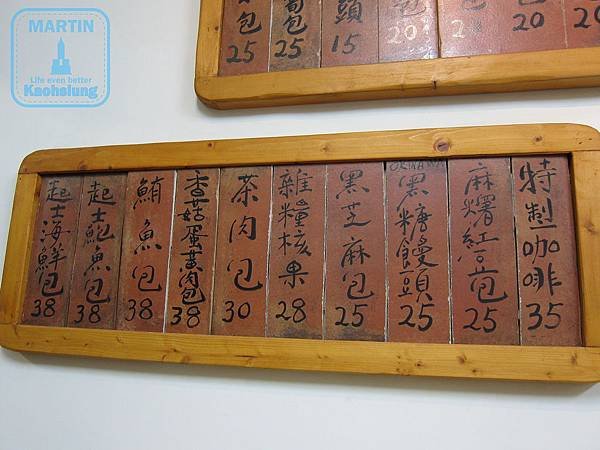 MARTIN
Life even better
Kaohsiung
20
20
20
包 20
頭 15
筍包 25
包 25
特製咖啡 35
麻糬紅豆包 25
OKINAWA
黑糖饅頭 25
黑芝麻包 25
雜糧核果 28
茶肉包 30
香菇蛋黃肉包 38
鮪魚包 38
起士鮑魚包 38
起士海鮮包 38